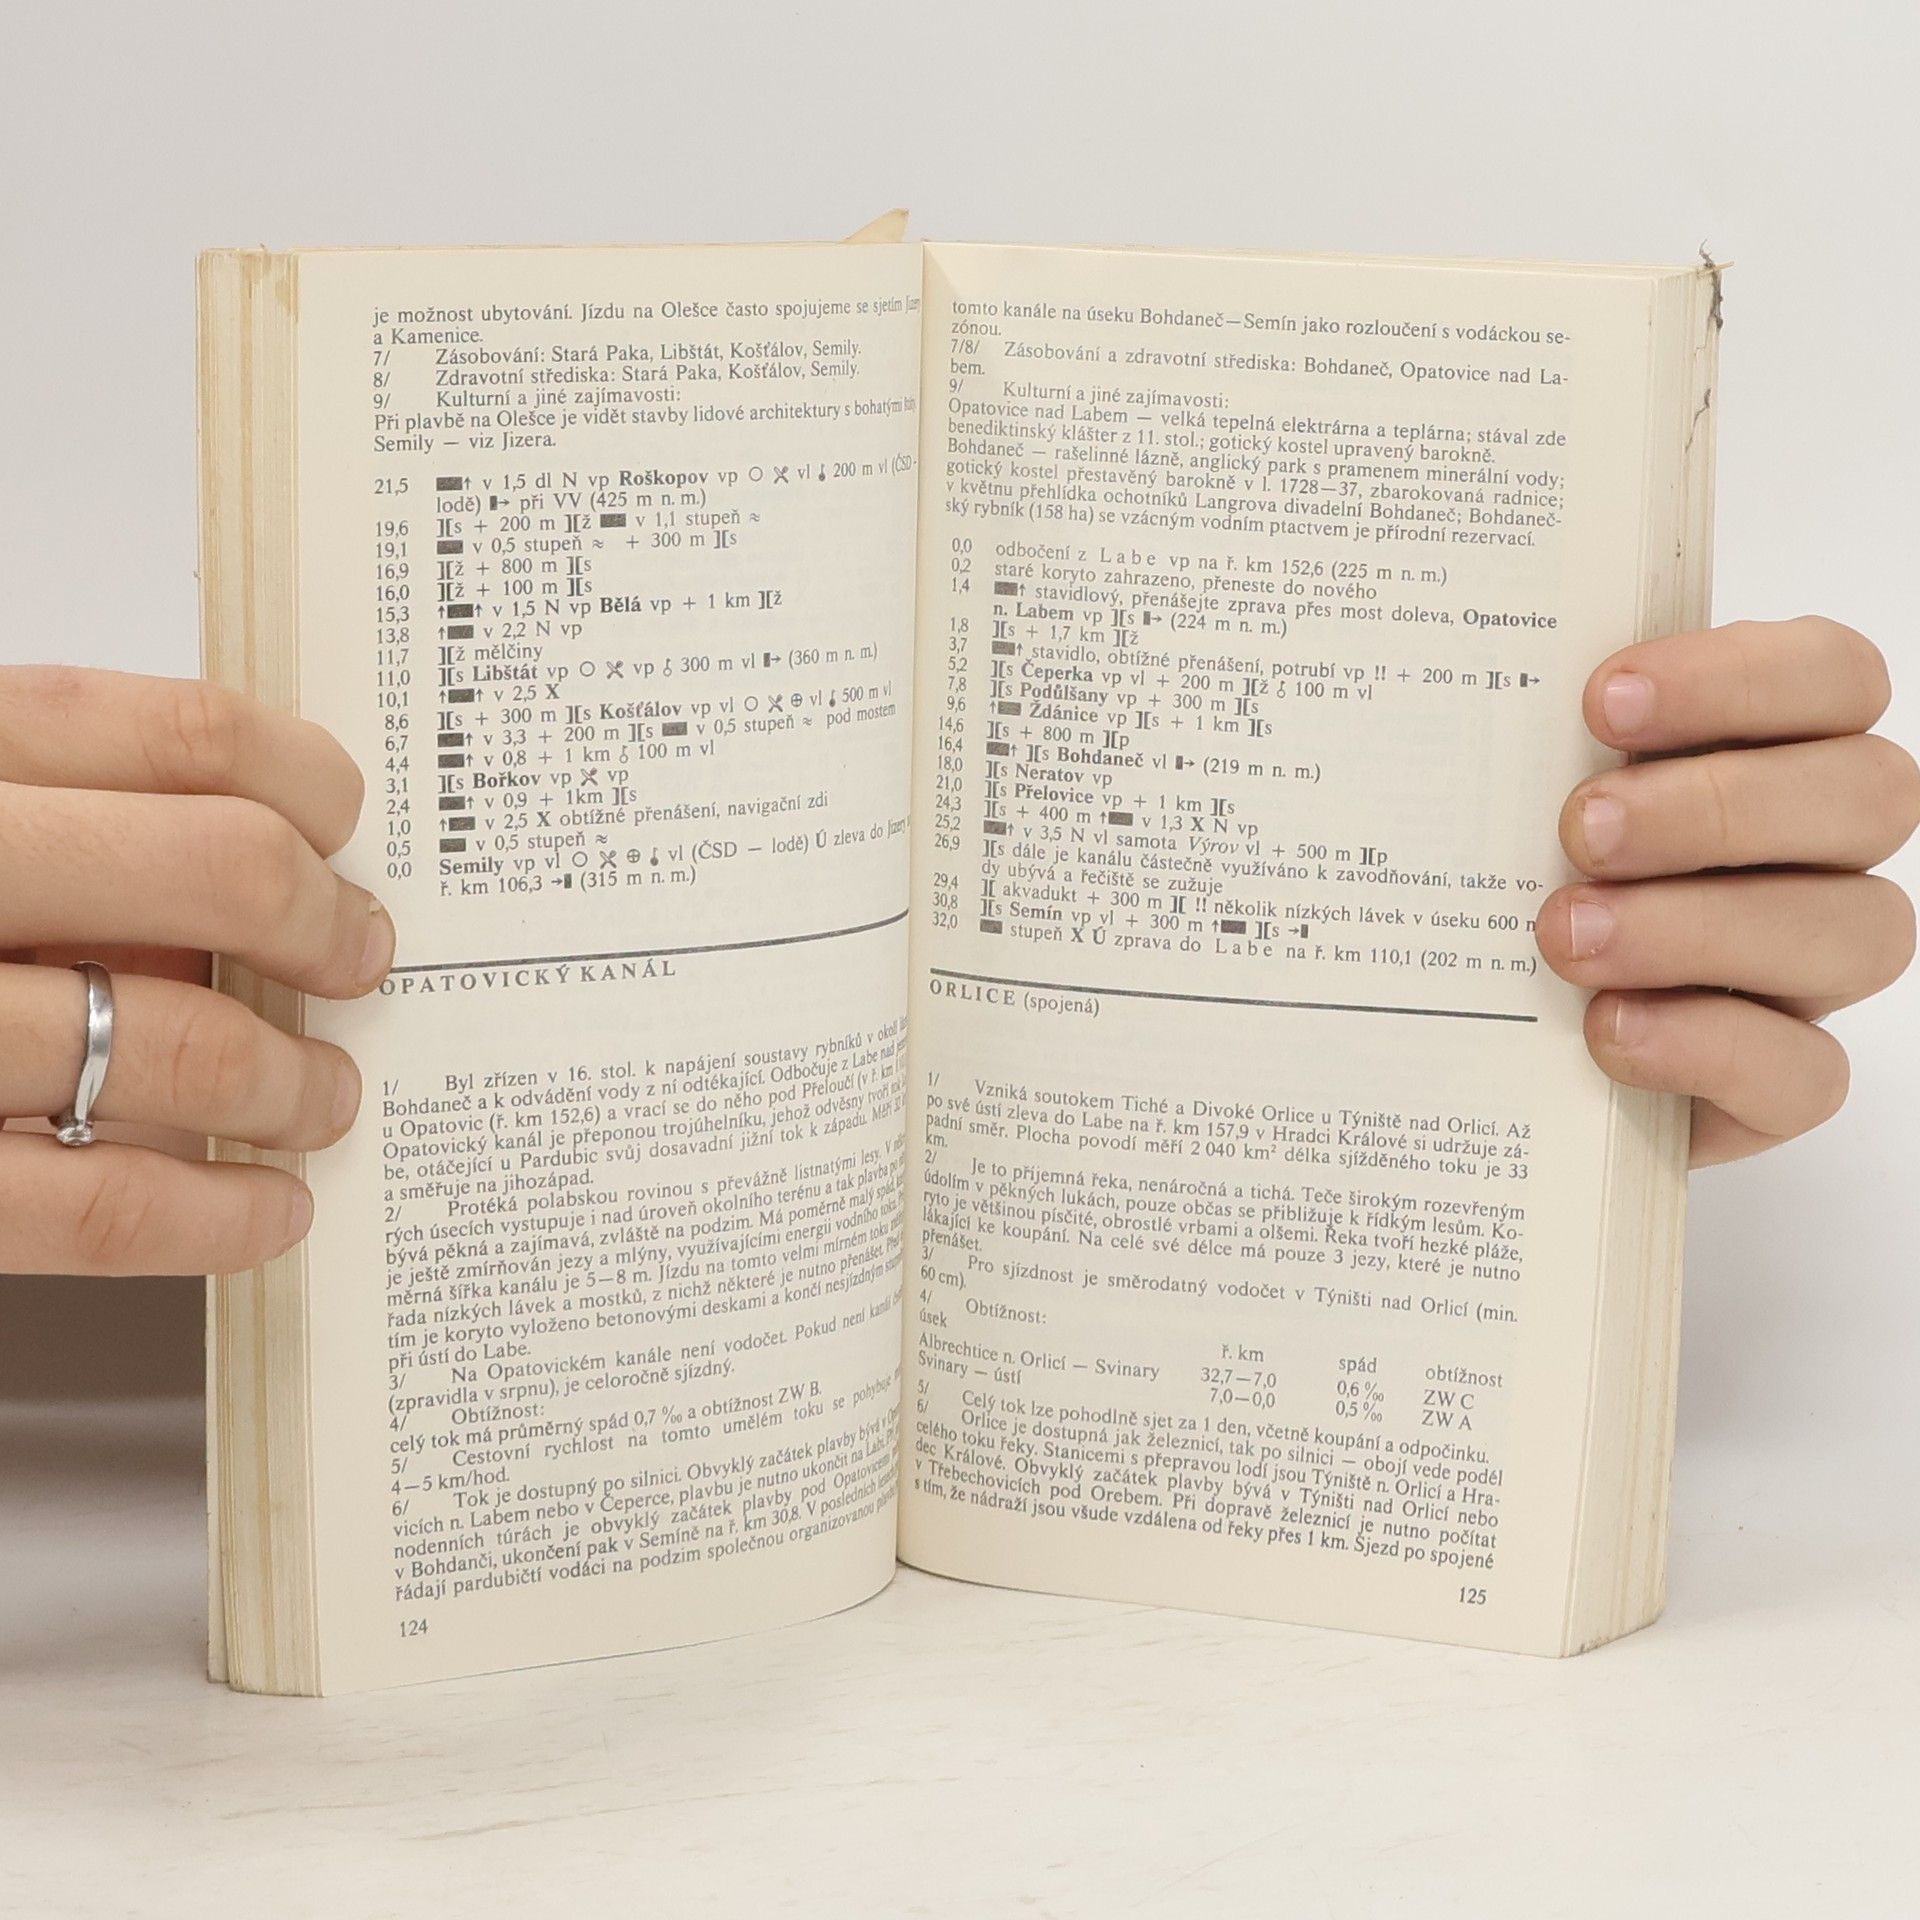 je možnost ubytování. Jízdu na Olešce často spojujeme se sjetím
a Kamenice.
7/ Zásobování: Stará Paka, Libštát, Košťálov, Semily.
8/ Zdravotní střediska: Stará Paka, Košťálov, Semily.
9/ Kulturní a jiné zajímavosti:
Při plavbě na Olešce je vidět stavby lidové architektury s bohatými
Semily — viz Jizera.
21,5 v 1,5 dl N vp Roškopov vp vl 200 m vl (ČSD -
lodě) při VV (425 m n. m.)
19,6 ][s + 200 m ][ž v 1,1 stupeň ≈
19,1 v 0,5 stupeň ≈ + 300 m ][s
16,9 ][ž + 800 m ][s
16,0 ][ž + 100 m ][s
15,3 ↑ ↑ v 1,5 N vp Bělá vp + 1 km ][ž
13,8 ↑ v 2,2 N vp
11,7 ][ž mělčiny
11,0 ][s Libštát vp vp 300 m vl (360 m n. m.)
10,1 ↑ ↑ v 2,5 X
8,6 ][s + 300 m ][s Košťálov vp vl ⊕ vl 500 m vl
6,7 ↑ v 3,3 + 200 m ][s v 0,5 stupeň ≈ pod mostem
4,4 ↑ v 0,8 + 1 km 100 m vl
3,1 ][s Bořkov vp vp
2,4 ↑ v 0,9 + 1km ][s
1,0 ↑ v 2,5 X obtížné přenášení, navigační zdi
0,5 v 0,5 stupeň ≈
0,0 Semily vp vl ⊕ vl (ČSD — lodě) Ú zleva do Jizery
ř. km 106,3 (315 m n. m.)
OPATOVICKÝ KANÁL
1/ Byl zřízen v 16. stol. k napájení soustavy rybníků v okolí
Bohdaneč a k odvádění vody z ní odtékající. Odbočuje z Labe nad
u Opatovic (ř. km 152,6) a vrací se do něho pod Přeloučí (v ř. km
Opatovický kanál je přeponou trojúhelníku, jehož odvěsny tvoří tok
be, otáčející u Pardubic svůj dosavadní jižní tok k západu. Měří 32
a směřuje na jihozápad.
2/ Protéká polabskou rovinou s převážně listnatými lesy. V
rých úsecích vystupuje i nad úroveň okolního terénu a tak plavba po
bývá pěkná a zajímavá, zvláště na podzim. Má poměrně malý spád,
je ještě zmírňován jezy a mlýny, využívajícími energii vodního toku.
měrná šířka kanálu je 5—8 m. Jízdu na tomto velmi mírném toku
řada nízkých lávek a mostků, z nichž některé je nutno přenášet. Před
tím je koryto vyloženo betonovými deskami a končí nesjízdným
při ústí do Labe.
3/ Na Opatovickém kanále není vodočet. Pokud není kanál
(zpravidla v srpnu), je celoročně sjízdný.
4/ Obtížnost:
celý tok má průměrný spád 0,7 ‰ a obtížnost ZW B.
5/ Cestovní rychlost na tomto umělém toku se pohybuje
4—5 km/hod.
6/ Tok je dostupný po silnici. Obvyklý začátek plavby bývá v
vicích n. Labem nebo v Čeperce, plavbu je nutno ukončit na Labi. Při
nodenních túrách je obvyklý začátek plavby pod Opatovicemi
v Bohdanči, ukončení pak v Semíně na ř. km 30,8. V posledních letech
řádají pardubičtí vodáci na podzim společnou organizovanou
124
tomto kanále na úseku Bohdaneč—Semín jako rozloučení s vodáckou se-
zónou.
7/8/ Zásobování a zdravotní střediska: Bohdaneč, Opatovice nad La-
bem.
9/ Kulturní a jiné zajímavosti:
Opatovice nad Labem — velká tepelná elektrárna a teplárna; stával zde
benediktinský klášter z 11. stol.; gotický kostel upravený barokně.
Bohdaneč — rašelinné lázně, anglický park s pramenem minerální vody;
gotický kostel přestavěný barokně v l. 1728—37, zbarokovaná radnice;
v květnu přehlídka ochotníků Langrova divadelní Bohdaneč; Bohdaneč-
ský rybník (158 ha) se vzácným vodním ptactvem je přírodní rezervací.
0,0 odbočení z Labe vp na ř. km 152,6 (225 m n. m.)
0,2 staré koryto zahrazeno, přeneste do nového
1,4 ↑ stavidlový, přenášejte zprava přes most doleva, Opatovice
n. Labem vp ][s (224 m n. m.)
1,8 ][s + 1,7 km ][ž
3,7 ↑ stavidlo, obtížné přenášení, potrubí vp !! + 200 m ][s
5,2 ][s Čeperka vp vl + 200 m ][ž 100 m vl
7,8 ][s Podůlšany vp + 300 m ][s
9,6 ↑ Ždánice vp ][s + 1 km ][s
14,6 ][s + 800 m ][p
16,4 ↑ ][s Bohdaneč vl (219 m n. m.)
18,0 ][s Neratov vp
21,0 ][s Přelovice vp + 1 km ][s
24,3 ][s + 400 m ↑ v 1,3 X N vp
25,2 ↑ v 3,5 N vl samota Výrov vl + 500 m ][p
26,9 ][s dále je kanálu částečně využíváno k zavodňování, takže vo-
dy ubývá a řečiště se zužuje
29,4 ][ akvadukt + 300 m ][ !! několik nízkých lávek v úseku 600 m
30,8 ][s Semín vp vl + 300 m ↑ ][s
32,0 stupeň X Ú zprava do Labe na ř. km 110,1 (202 m n. m.)
ORLICE (spojená)
1/ Vzniká soutokem Tiché a Divoké Orlice u Týniště nad Orlicí. Až
po své ústí zleva do Labe na ř. km 157,9 v Hradci Králové si udržuje zá-
padní směr. Plocha povodí měří 2 040 km² délka sjížděného toku je 33
km.
2/ Je to příjemná řeka, nenáročná a tichá. Teče širokým rozevřeným
údolím v pěkných lukách, pouze občas se přibližuje k řídkým lesům. Ko-
ryto je většinou písčité, obrostlé vrbami a olšemi. Řeka tvoří hezké pláže,
lákající ke koupání. Na celé své délce má pouze 3 jezy, které je nutno
přenášet.
3/ Pro sjízdnost je směrodatný vodočet v Týništi nad Orlicí (min.
60 cm).
4/ Obtížnost:
úsek ř. km spád obtížnost
Albrechtice n. Orlicí — Svinary 32,7—7,0 0,6 ‰ ZW C
Svinary — ústí 7,0—0,0 0,5 ‰ ZW A
5/ Celý tok lze pohodlně sjet za 1 den, včetně koupání a odpočinku.
6/ Orlice je dostupná jak železnicí, tak po silnici — obojí vede podél
celého toku řeky. Stanicemi s přepravou lodí jsou Týniště n. Orlicí a Hra-
dec Králové. Obvyklý začátek plavby bývá v Týništi nad Orlicí nebo
v Třebechovicích pod Orebem. Při dopravě železnicí je nutno počítat
s tím, že nádraží jsou všude vzdálena od řeky přes 1 km. Sjezd po spojené
125